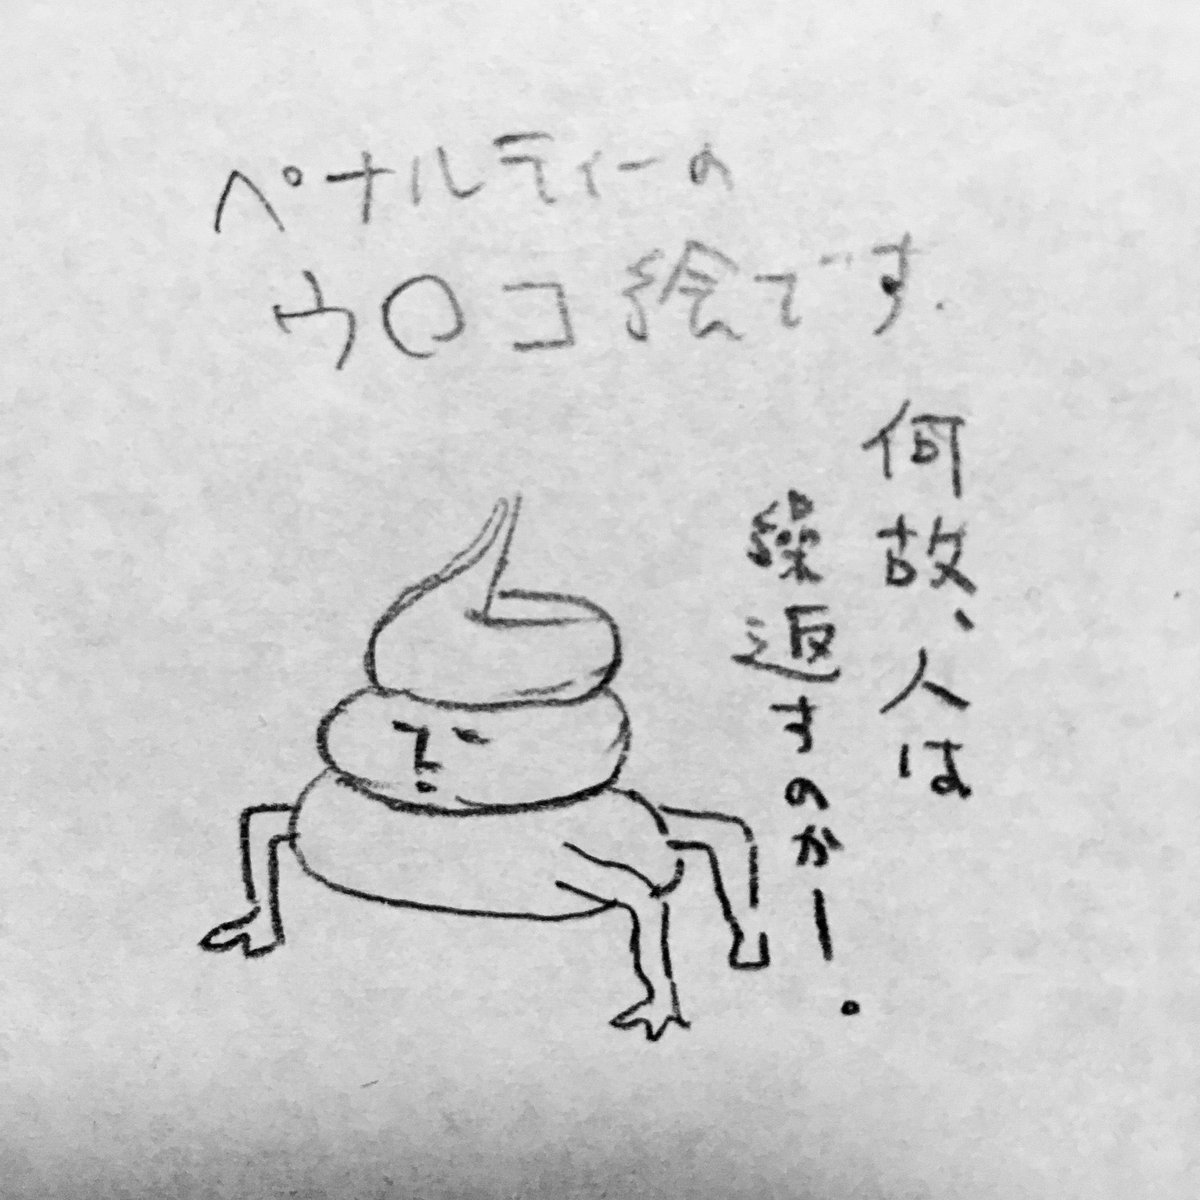 ペナルティーの
ウロコ絵です.
何故、人は
繰返すのかー.